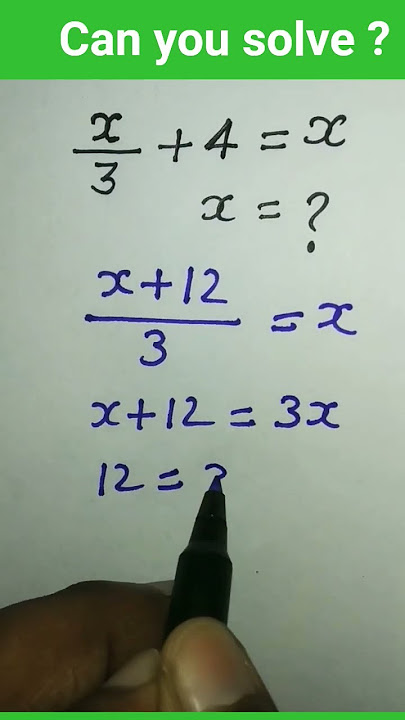 Can you solve ?
x/3 + 4 = x
x = ?
x+12/3 = x
x+12 = 3x
12 =